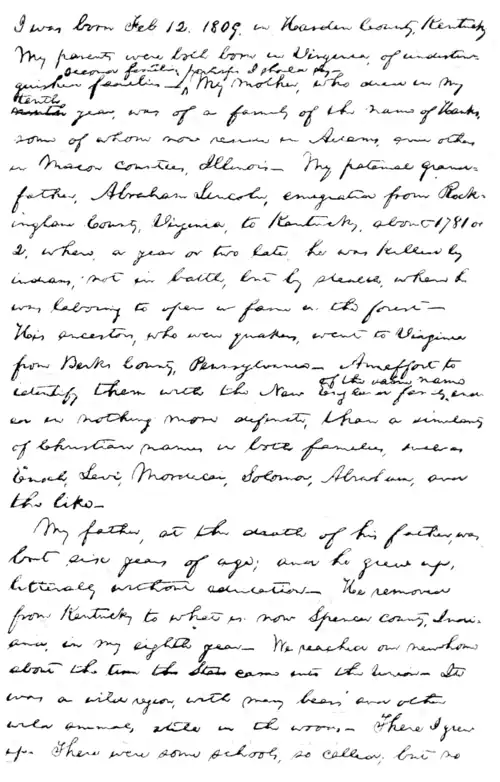 I was born Feb. 12. 1809. in Hardin County, Kentucky
My parents were both born in Virginia, of undistin-
second families, perhaps I should say
guished families — My mother, who died in my
tenth
year, was of a family of the name of Hanks,
some of whom now reside in Adams, and others
in Macon counties, Illinois — My paternal grand-
father, Abraham Lincoln, emigrated from Rock-
ingham County, Virginia, to Kentucky, about 1781 or
2, where, a year or two later, he was killed by
indians, not in battle, but by stealth, when he
was laboring to open a farm in the forest —
His ancestors, who were quakers, went to Virginia
from Berks County, Pennsylvania — An effort to
of the same name
identify them with the New England family end-
ed in nothing more definite, than a similarity
of Christian names in both families, such as
Enoch, Levi, Mordecai, Solomon, Abraham, and
the like —
My father, at the death of his father, was
but six years of age; and he grew up,
litterally without education — He removed
from Kentucky to what is now Spencer county, Indi-
ana, in my eighth year — We reached our new home
about the time the State came into the Union — It
was a wild region, with many bears and other
wild animals, still in the woods — There I grew
up — There were some schools, so called; but no